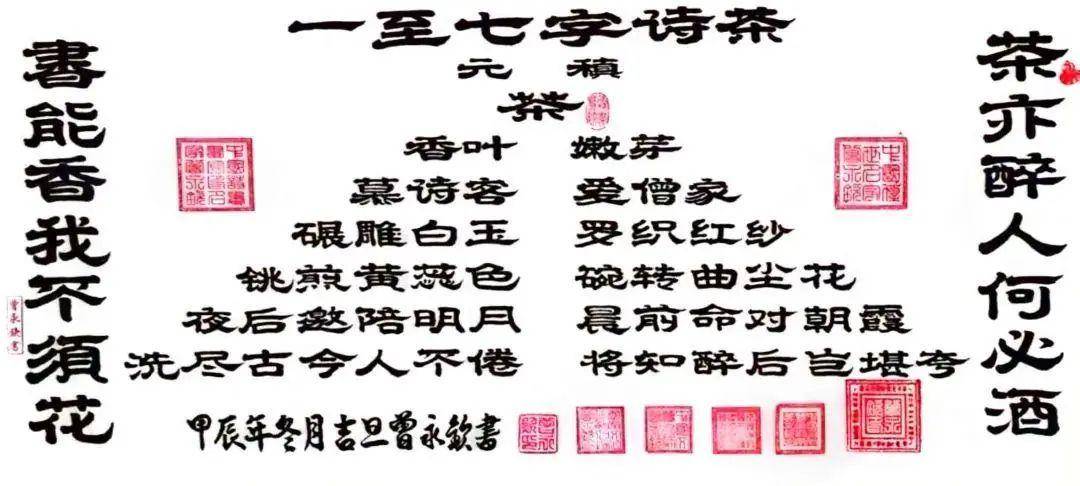 茶亦醉人何必酒
一至七字诗茶
元 稹
茶
香叶 嫩芽
慕诗客 爱僧家
碾雕白玉 罗织红纱
铫煎黄蕊色 碗转曲尘花
夜后邀陪明月 晨前命对朝霞
洗尽古今人不倦 将知醉后岂堪夸
甲辰年冬月吉旦曾永欽書
書能香我不須花